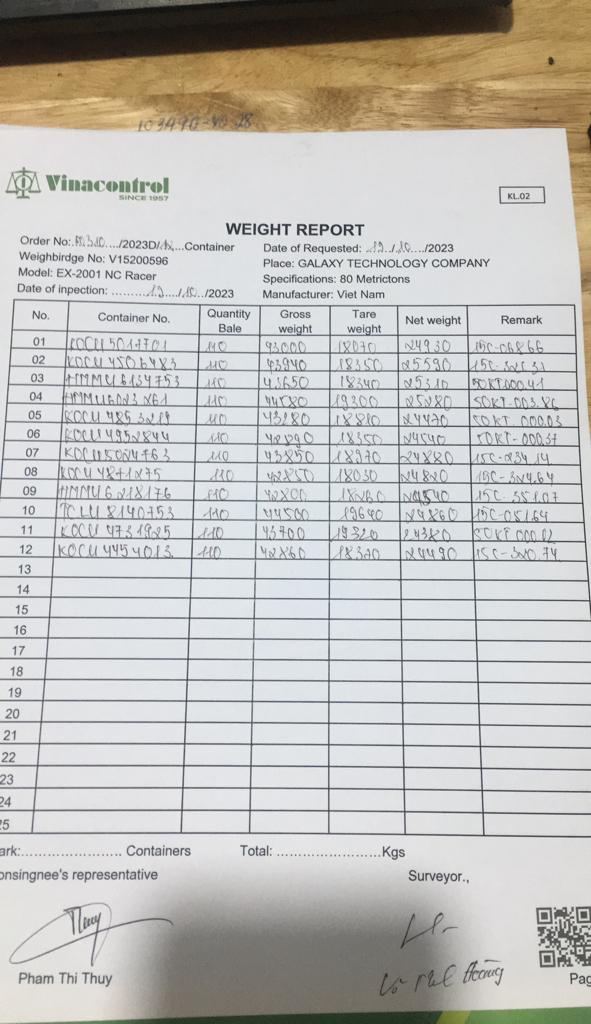 103490-40.28
Vinacontrol
SINCE 1957
KL.02
WEIGHT REPORT
Order No: ..../2023D/....Container
Date of Requested: .19./.10..../2023
Weighbirdge No: V15200596
Place: GALAXY TECHNOLOGY COMPANY
Model: EX-2001 NC Racer
Specifications: 80 Metrictons
Date of inpection: ..........19..../.10../2023
Manufacturer: Viet Nam
No. Container No. Quantity Bale Gross weight Tare weight Net weight Remark
01 KOCU 5011701 110 43000 18070 24930 15C-068.66
02 KOCU 4506483 110 43940 18350 25590 15C-
03 HMMU 6134753 110 43650 18340 25310 50KT.000.41
04 HMMU 110 44580 19300 25280 50KT-003.86
05 KOCU 110 43280 18810 24470 50KT 000.03
06 KOCU 4952844 110 42890 18350 24540 50KT-000.37
07 KOCU 5024763 110 43850 18970 24880 15C-234.14
08 KOCU 4871275 110 42850 18030 24820 15C-324.64
09 HMMU 6218176 110 42800 18260 24540 15C-351.07
10 TCLU 8140753 110 44500 19640 24860 15C-051.64
11 KOCU 4731925 110 43700 19320 24380 50KT 000.02
12 KOCU 4454013 110 42860 18370 24490 15C-320.74
13
14
15
16
17
18
19
20
21
22
23
24
25
ark:........................ Containers Total: .........................Kgs
onsingnee's representative
Surveyor.,
Thuy
Pham Thi Thuy
Hoàng
Pag